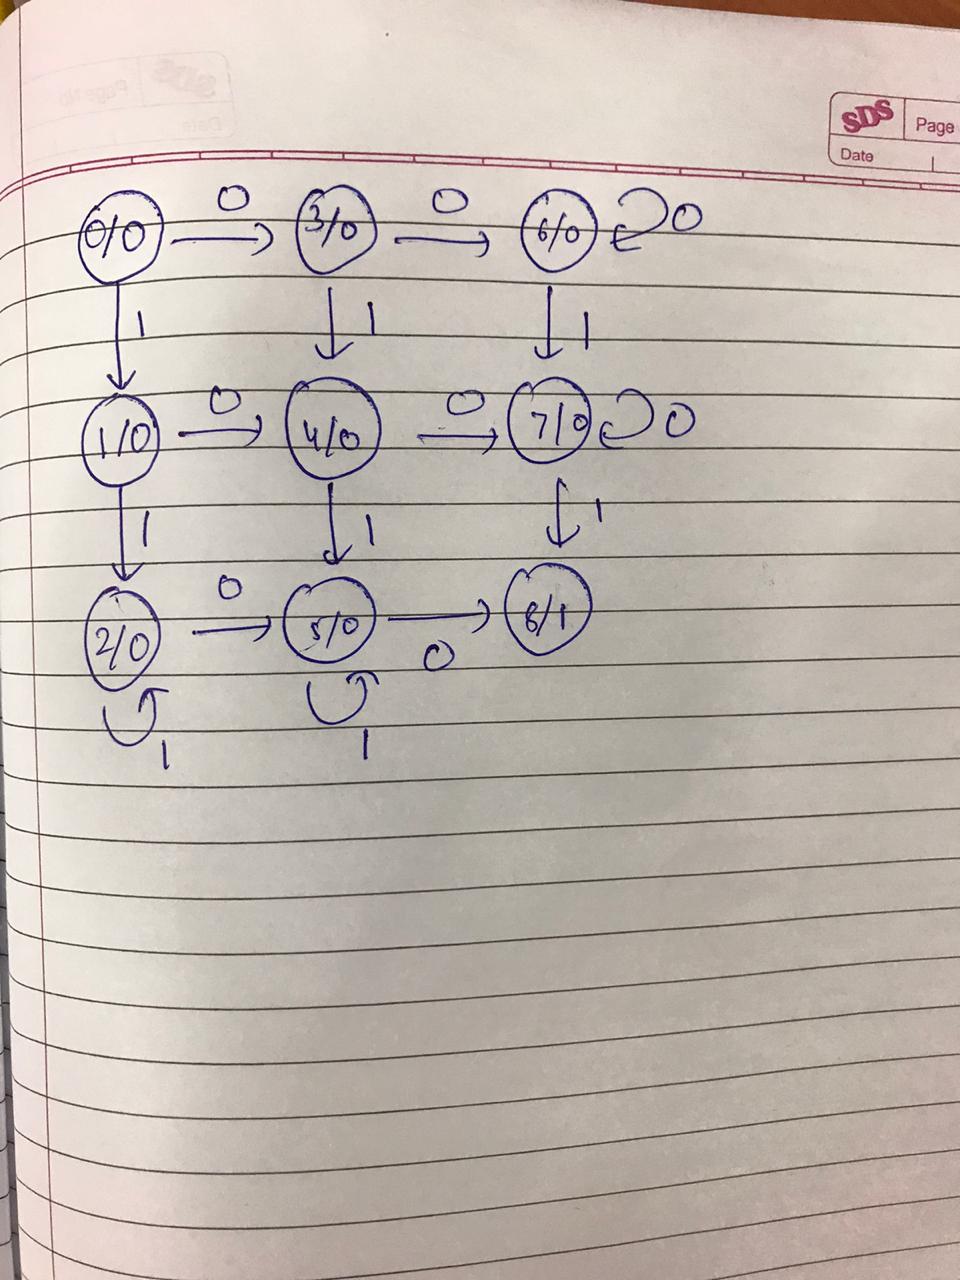 SDS
Page
Date
0 0
0/0 3/0 6/0 0
1 1 1
0 0
1/0 4/0 7/0 0
1 1 1
0
2/0 5/0 8/1
0
1 1